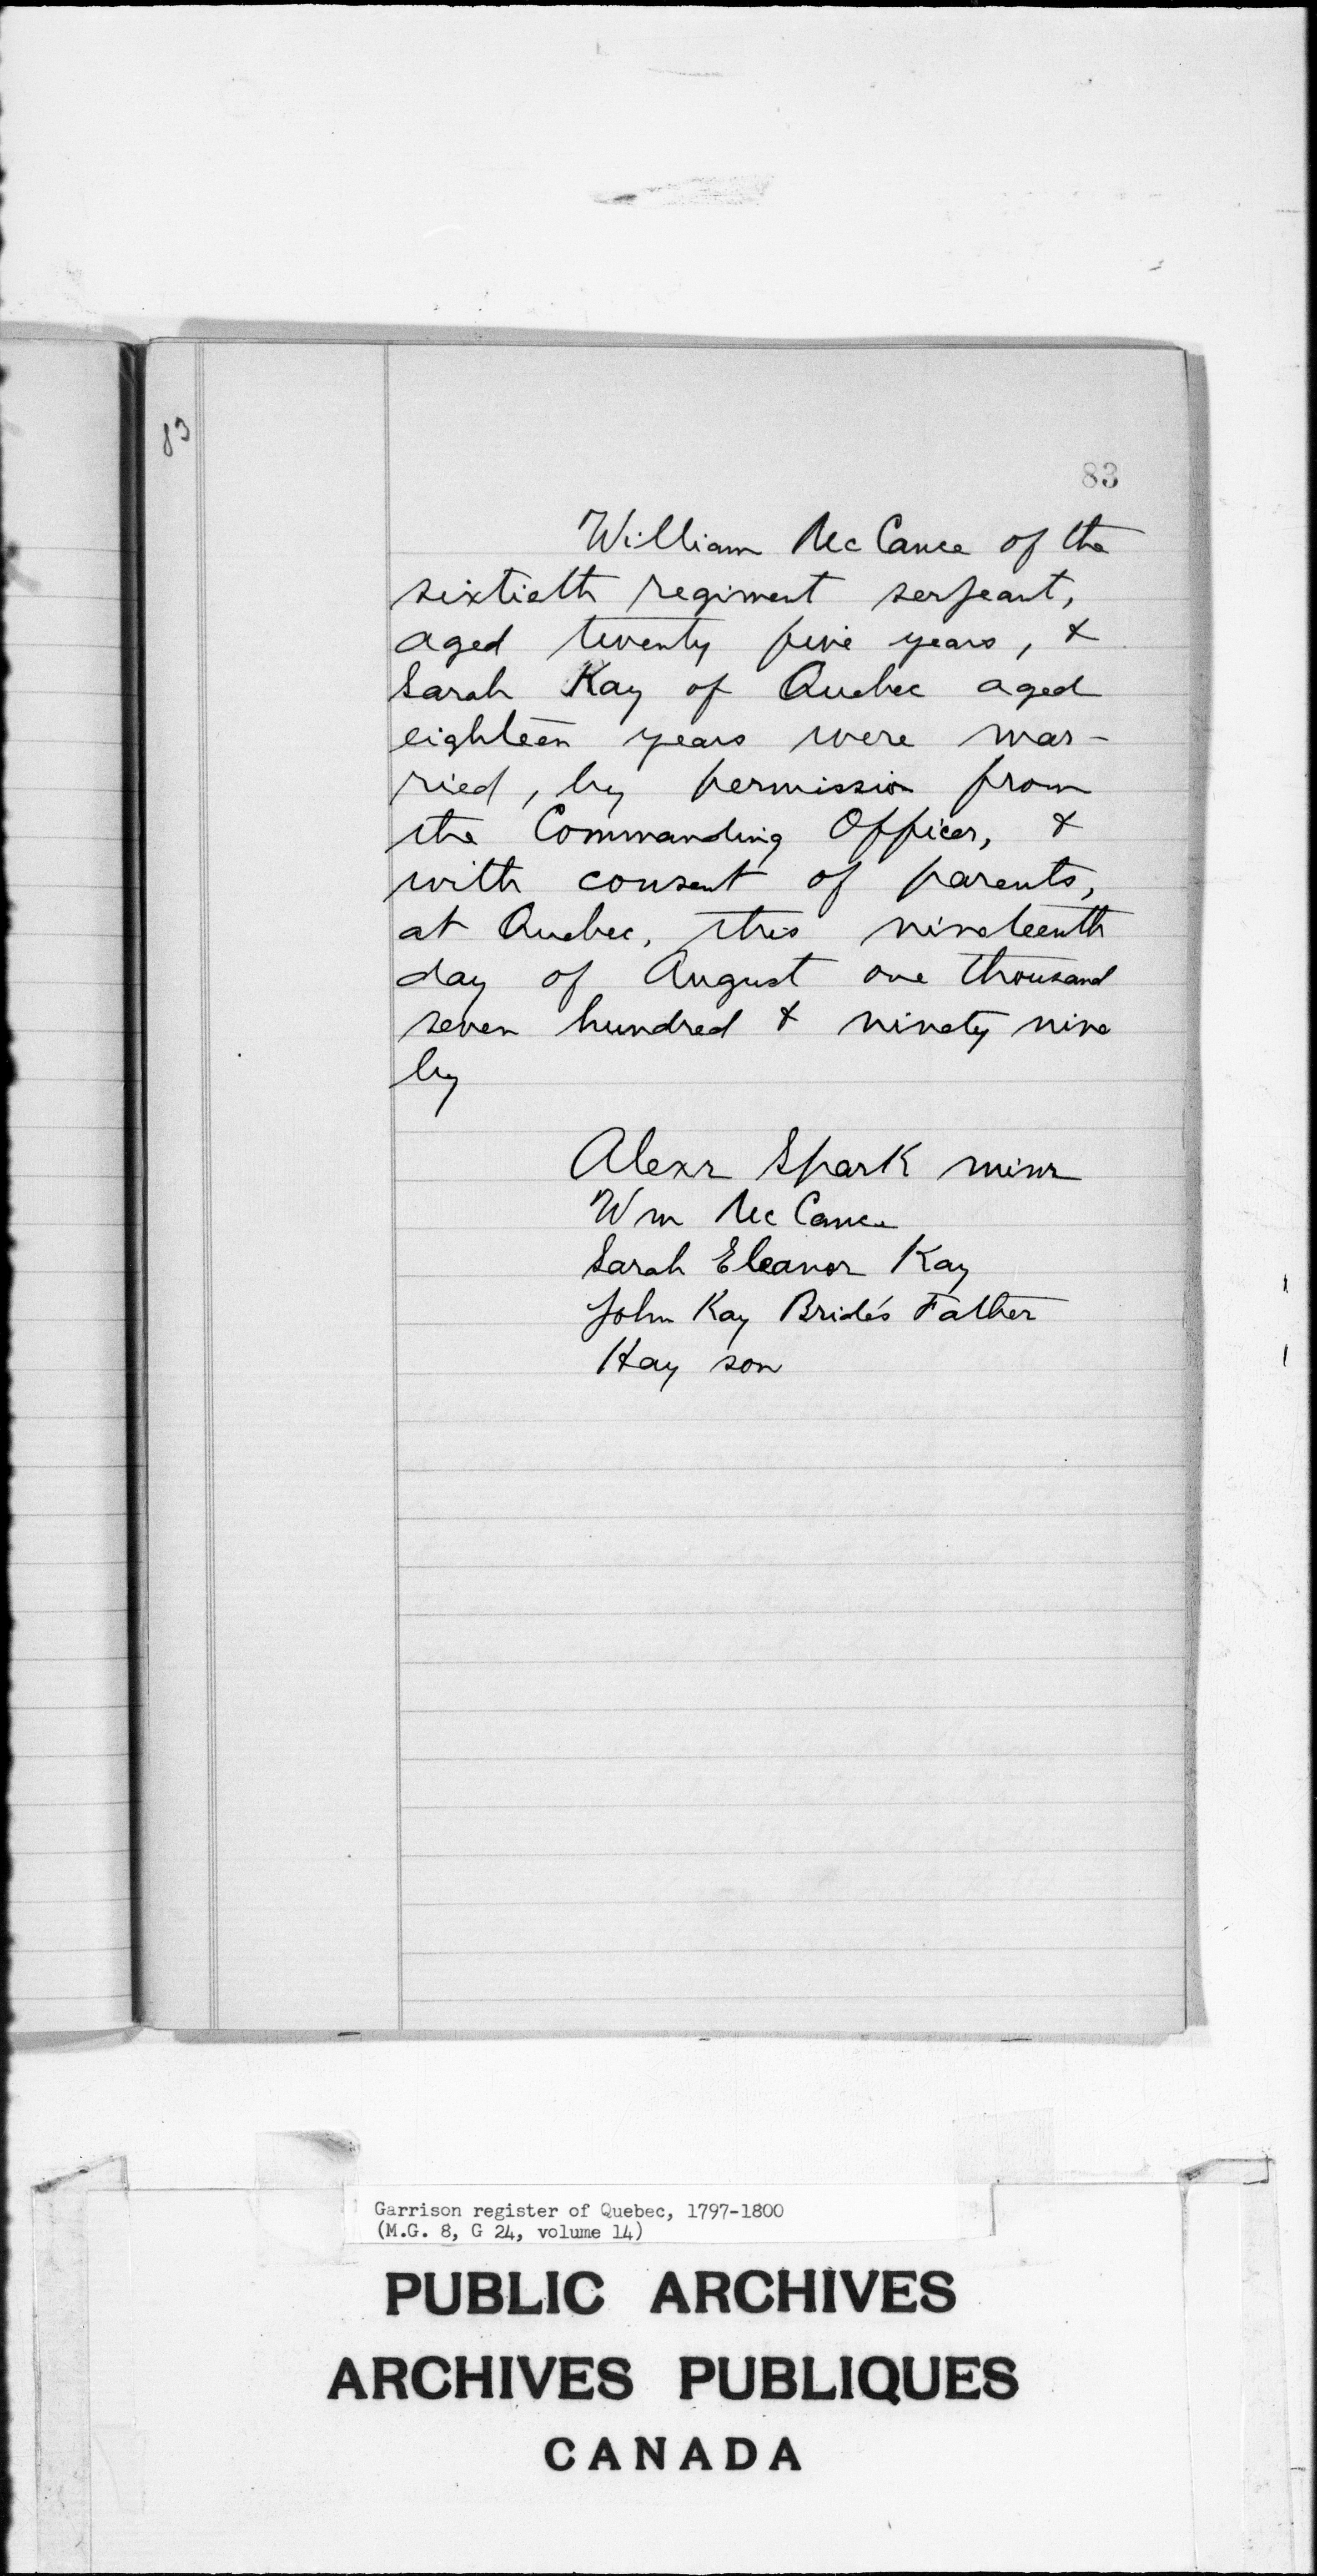 83
83
William McCance of the
sixtieth regiment serjeant,
aged twenty five years, &
Sarah Kay of Quebec aged
eighteen years were mar-
ried, by permission from
the Commanding Officer, &
with consent of parents,
at Quebec, this nineteenth
day of August one thousand
seven hundred & ninety nine
by
Alexr Spark minr
Wm McCance
Sarah Eleanor Kay
John Kay Bride's Father
Hay son
Garrison register of Quebec, 1797-1800
(M.G. 8, G 24, volume 14)
PUBLIC ARCHIVES
ARCHIVES PUBLIQUES
CANADA